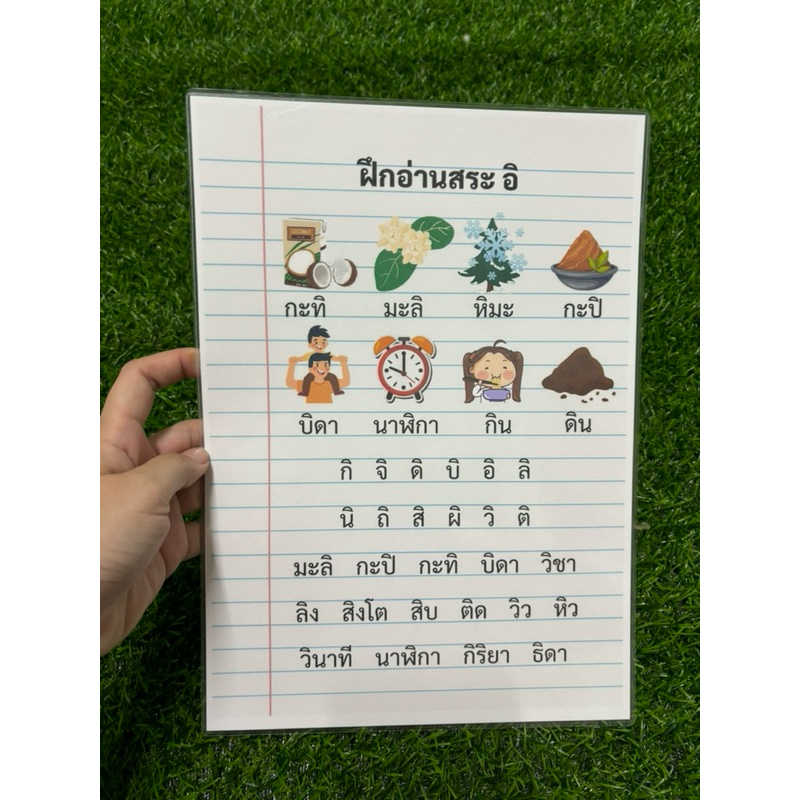 ฝึกอ่านสระ อิ
กะทิ มะลิ หิมะ กะปิ
บิดา นาฬิกา กิน ดิน
กิ จิ ดิ บิ อิ ลิ
นิ ถิ สิ ผิ วิ ติ
มะลิ กะปิ กะทิ บิดา วิชา
ลิง สิงโต สิบ ติด วิว หิว
วินาที นาฬิกา กิริยา ธิดา